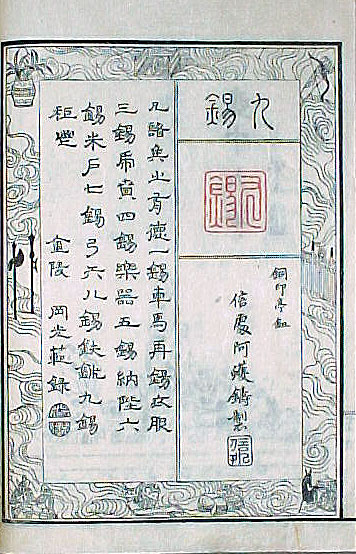 九錫
九錫
銅印亭鈕
信處阿護鑄製
凡諸矦之有德一錫車馬再錫衣服
三錫虎賁四錫樂器五錫納陛六
錫朱戶七錫弓矢八錫鈇鉞九錫
秬鬯
金陵 岡光範錄